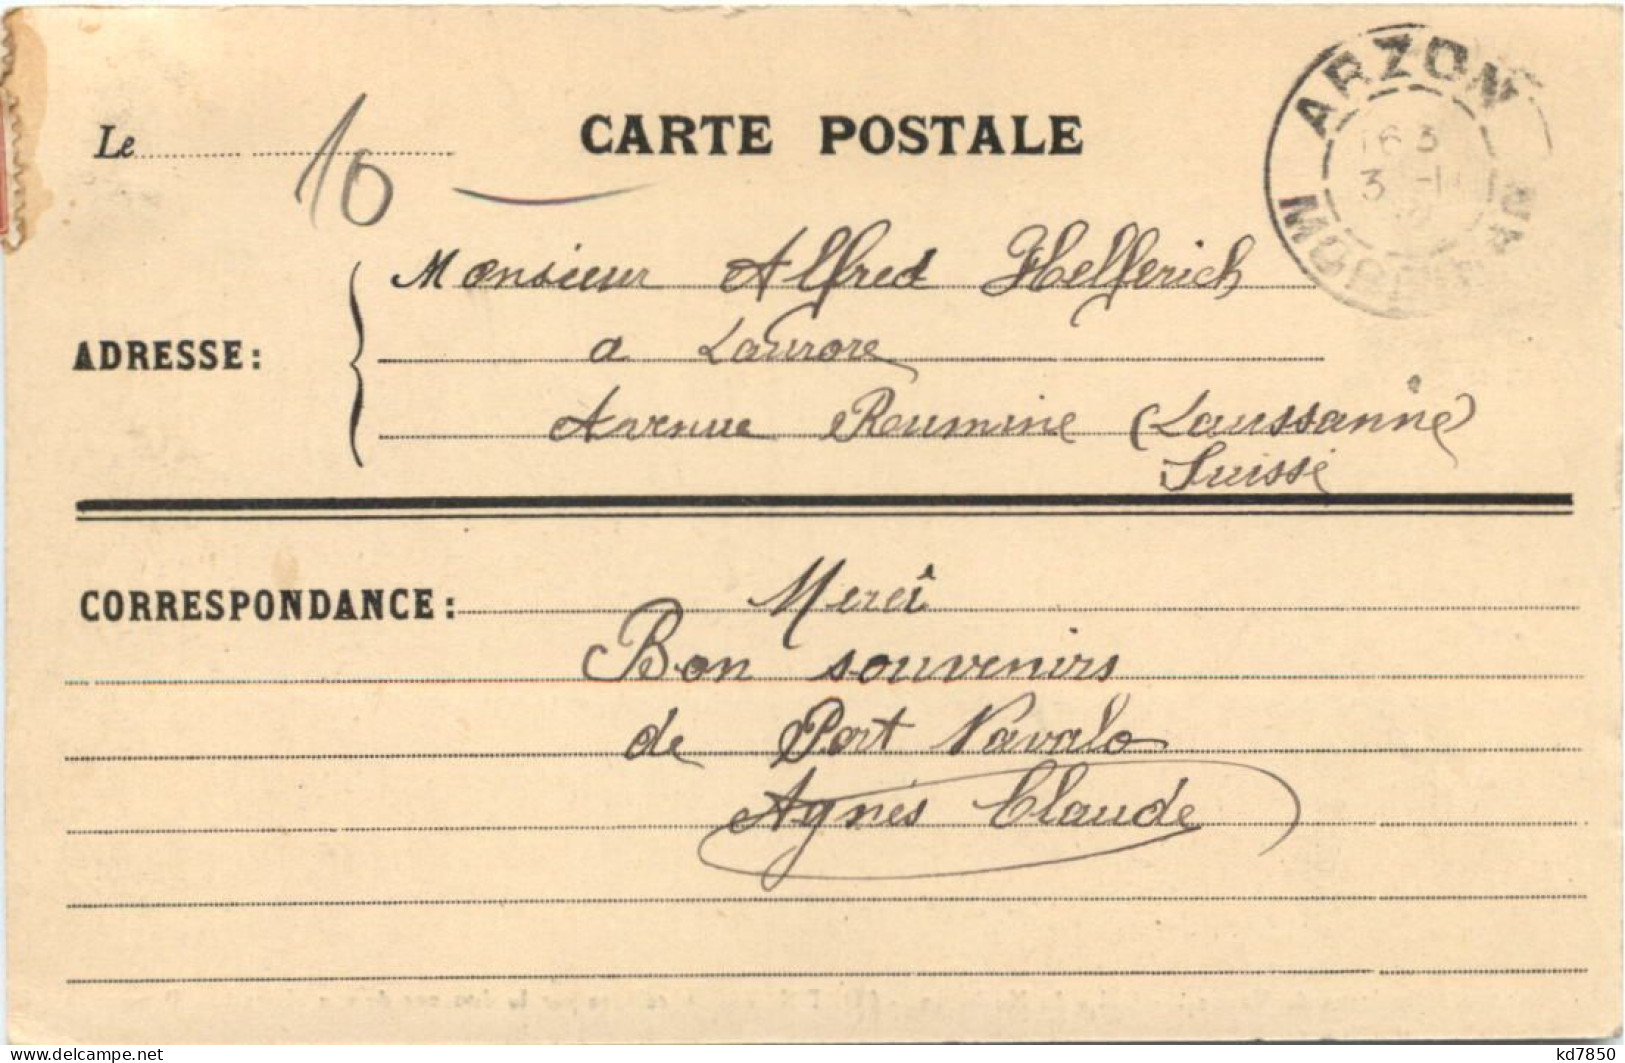 ARZON
MORBIHAN
163
3 -11
Le
10
CARTE POSTALE
ADRESSE:
Monsieur Alfred Helferich
a Laurore
Avenue Rumine (Laussanne)
Suisse
CORRESPONDANCE:
Merci
Bon souvenirs
de Port Navalo
Agnès Claude
delcampe.net
kd7850